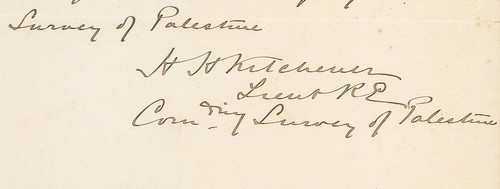 Survey of Palestine
H H Kitchener
Lieut RE
Comding Survey of Palestine